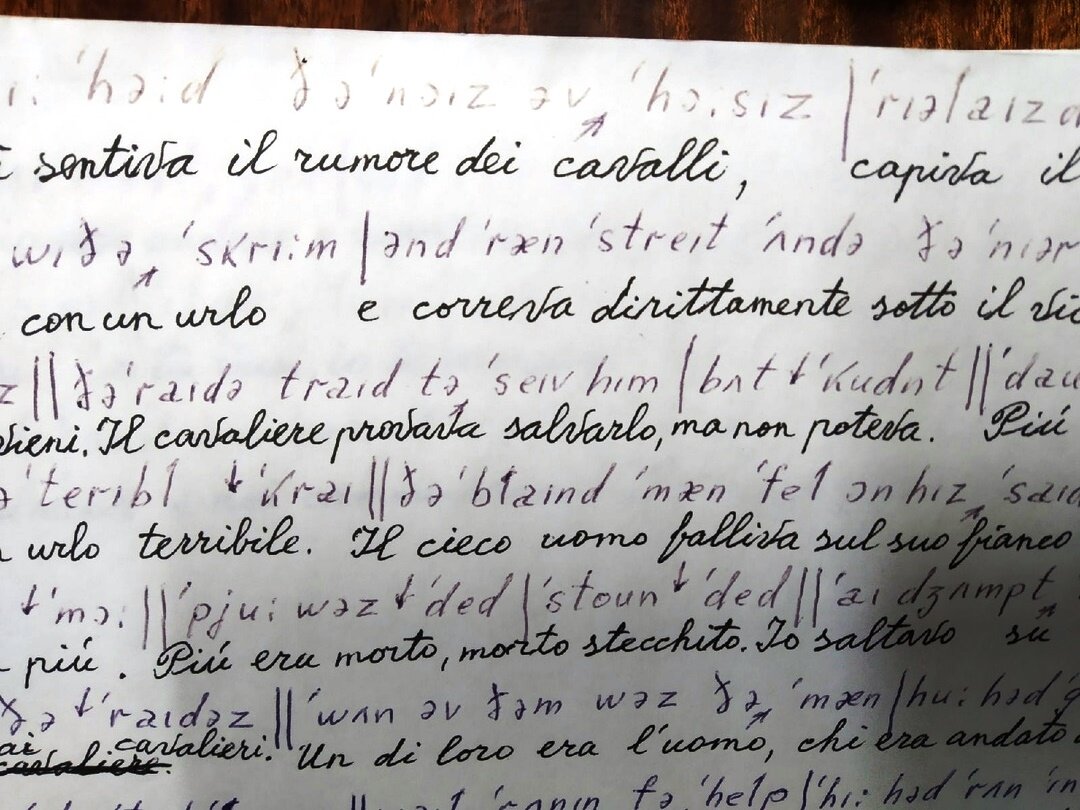 i: 'hə:d ðə 'nɔız əv 'hɔ:sız | 'rıəlaız
sentiva il rumore dei cavalli, capiva il
wıð ə 'skri:m | ənd 'ræn 'streıt 'ʌndə ðə 'nıər
con un urlo e correva dirittamente sotto il vic
z || ðə 'raıdə traıd tə 'seıv hım | bʌt ↓'kudnt || 'dau
vieni. Il cavaliere provava salvarlo, ma non poteva. Piú
ə 'terıbl ↓'kraı || ðə 'blaınd 'mæn 'fel ɔn hız 'saıd
urlo terribile. Il cieco uomo falliva sul suo fianco
↓'mɔ: || 'pju: wəz ↓'ded | 'stoun ↓'ded || 'aı dʒʌmpt
piú. Piú era morto, morto stecchito. Io saltavo su
ðə ↓'raıdəz || 'wʌn əv ðəm wəz ðə 'mæn | hu: həd 'g
ai cavalieri. Un di loro era l'uomo, chi era andato
fə 'help | 'hi: həd 'rʌn 'ın